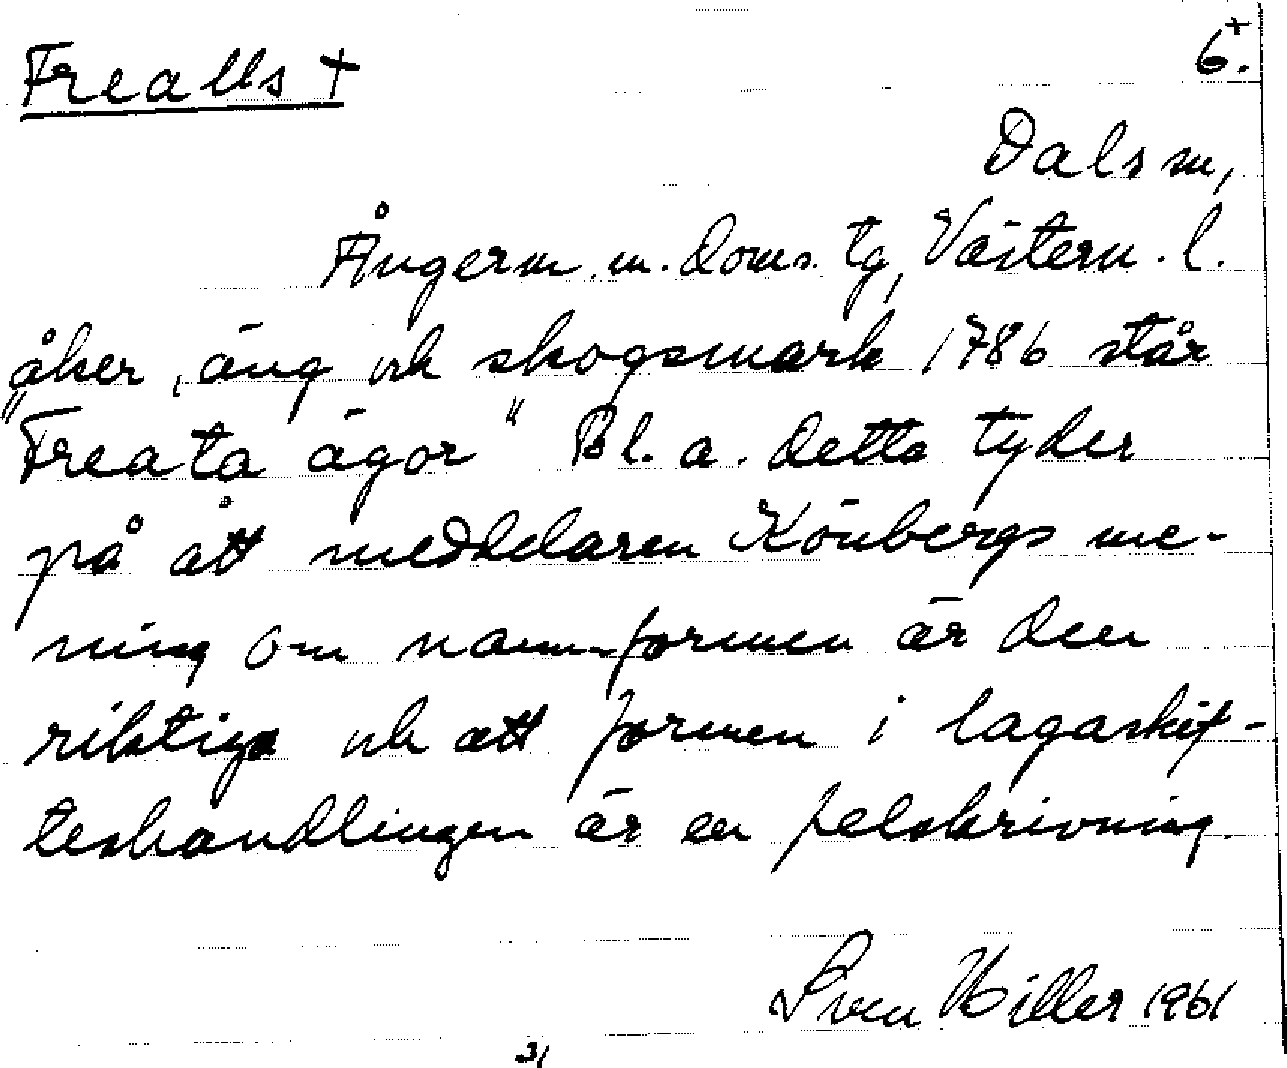 Frealls + 6.+
Dals sn,
Ångerm. m. doms. tg, Västern. l.
åker, äng och skogsmark 1786 står
"Freata ägor" Bl. a. detta tyder
på att meddelaren Könbergs me-
ning om namnformen är den
riktiga och att formen i lagaskif-
teshandlingen är en felskrivning.
Sven Hiller 1961